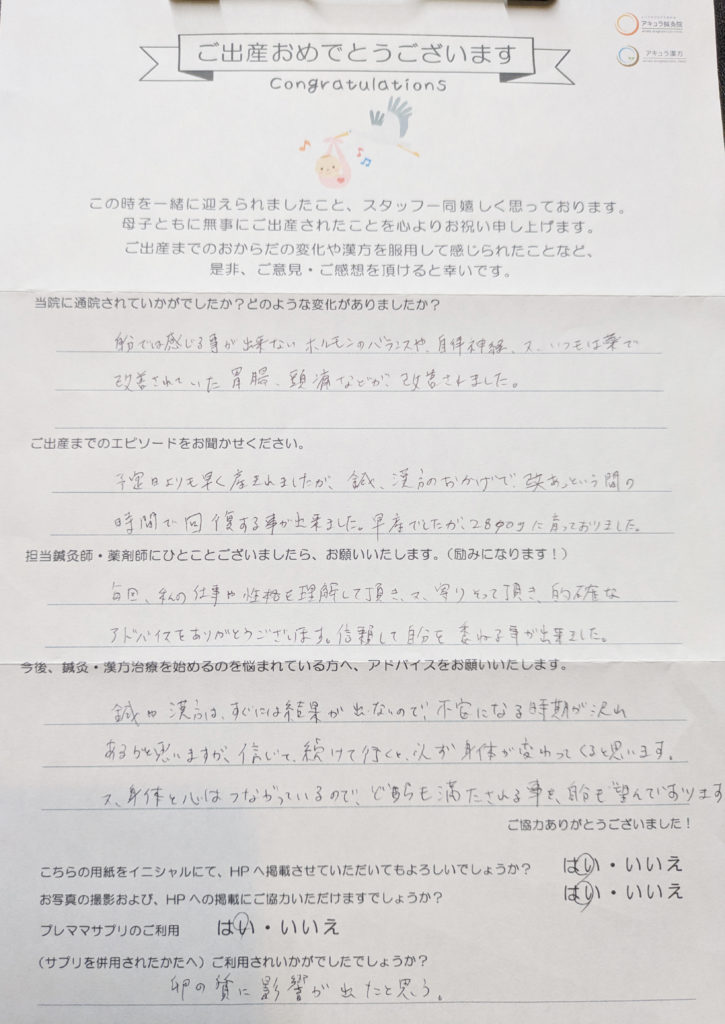 アキュラ鍼灸院
アキュラ漢方
ご出産おめでとうございます
Congratulations
この時を一緒に迎えられましたこと、スタッフ一同嬉しく思っております。
母子ともに無事にご出産されたことを心よりお祝い申し上げます。
ご出産までのおからだの変化や漢方を服用して感じられたことなど、
是非、ご意見・ご感想を頂けると幸いです。
当院に通院されていかがでしたか?どのような変化がありましたか?
自分では感じる事が出来ない ホルモンのバランスや、自律神経、又、いつもは薬で
改善されていた 胃腸、頭痛などが、改善されました。
ご出産までのエピソードをお聞かせください。
予定日よりも早く産まれましたが、鍼、漢方のおかげで、あっという間の
時間で回復する事が出来ました。早産でしたが、2800gに育っておりました。
担当鍼灸師・薬剤師にひとことございましたら、お願いいたします。(励みになります!)
毎回、私の仕事や性格を理解して頂き、又、寄りそって頂き、的確な
アドバイスをありがとうございます。信頼して自分を委ねる事が出来ました。
今後、鍼灸・漢方治療を始めるのを悩まれている方へ、アドバイスをお願いいたします。
鍼や漢方は、すぐには結果が出ないので、不安になる時期が沢山
あるかと思いますが、信じて、続けて行くと、必ず身体が変わってくると思います。
又、身体と心はつながっているので、どちらも満たされる事を、自分も望んでおります
ご協力ありがとうございました!
こちらの用紙をイニシャルにて、HPへ掲載させていただいてもよろしいでしょうか? はい・いいえ
お写真の撮影および、HPへの掲載にご協力いただけますでしょうか? はい・いいえ
プレママサプリのご利用 はい・いいえ
(サプリを併用されたかたへ)ご利用されいかがでしたでしょうか?
卵の質に影響が出たと思う。